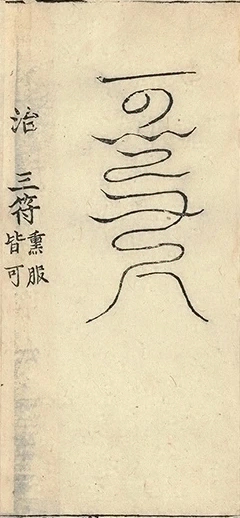 治 三符熏服皆可